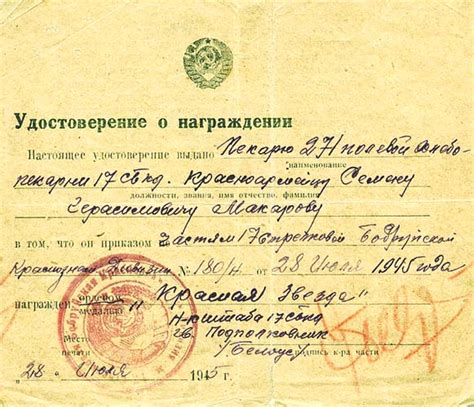 Удостоверение о награждении
Настоящее удостоверение выдано Пекарю 271 полевой хлебо-
наименование
пекарни 17 СБКД. Красноармейцу Семену
должности, звания, имя отчество, фамилия
Герасимовичу Макарову
в том, что он приказом по частям 17 стрелковой Бобруйской
Краснознам. Дивизии № 180/н от 28 Июля 1945 года
награжден орденом
медалью "Красная Звезда"
Н-к штаба 17 СБКД
Гв. Подполковник
Место печати
/Белоус/
подпись к-ра части
"28" Июля 1945 г.